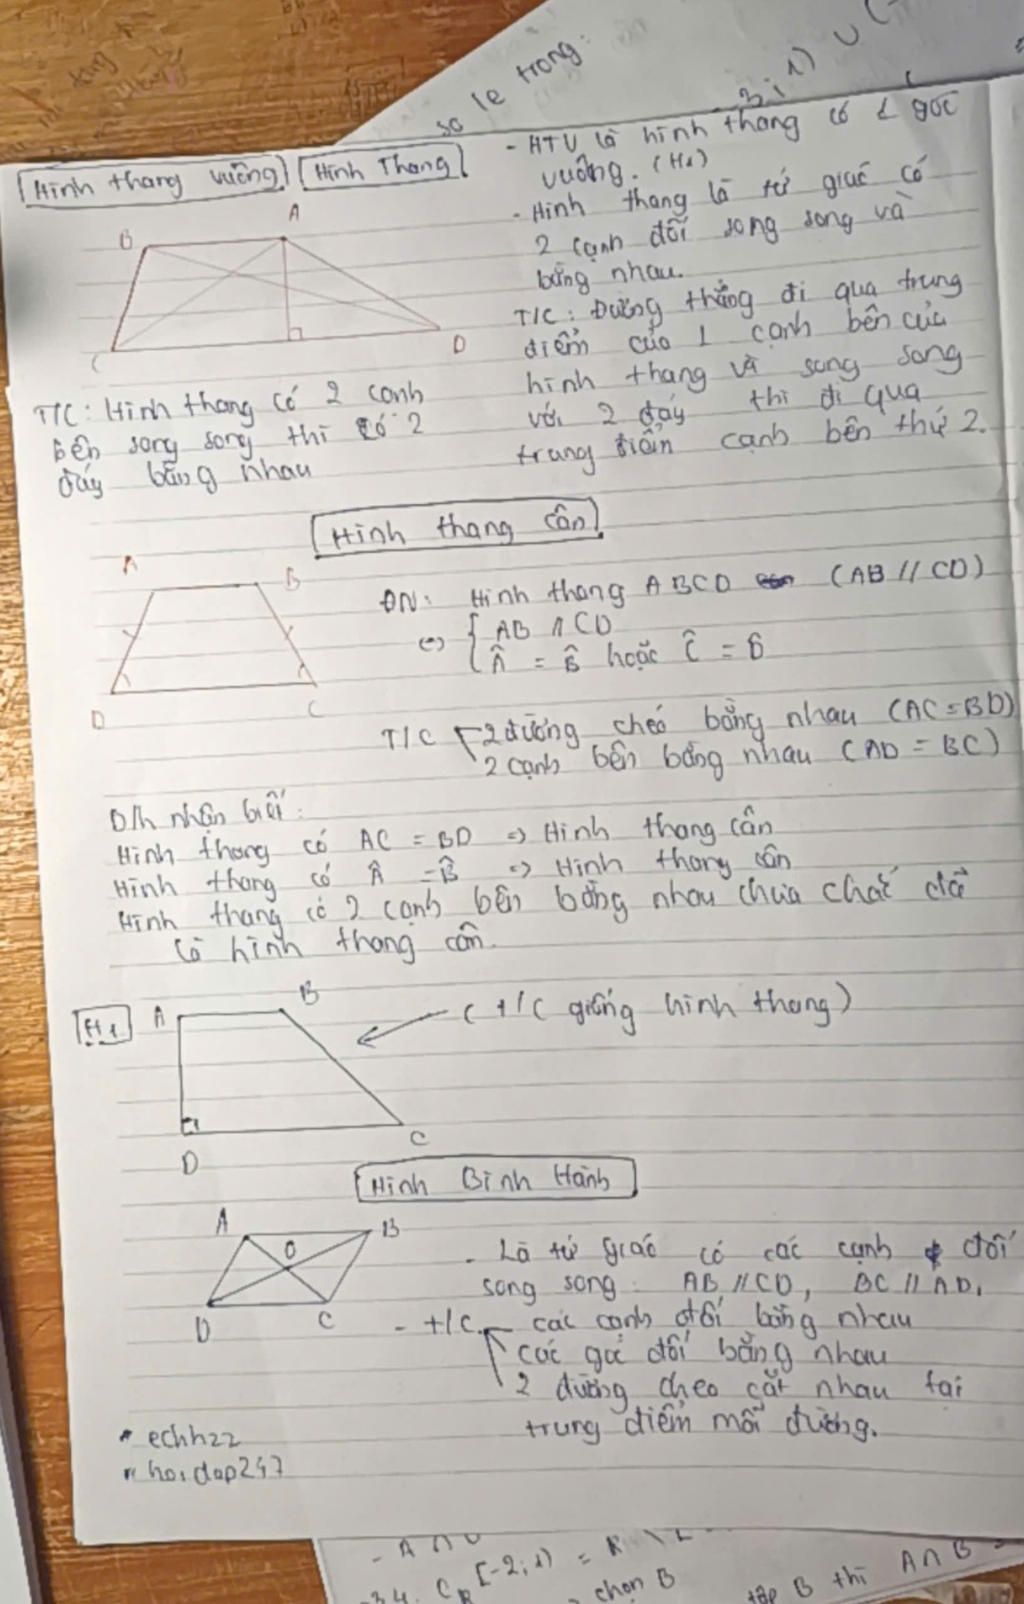 so le trong.
Hình thang vuông Hình Thang
- HTV là hình thang có 1 góc
vuông. (H1)
- Hình thang là tứ giác có
2 cạnh đối song song và
bằng nhau.
T/C: Đường thẳng đi qua trung
điểm của 1 cạnh bên của
hình thang và song song
với 2 đáy thì đi qua
trung điểm cạnh bên thứ 2.
B A
C D
T/C: Hình thang có 2 cạnh
bên song song thì có 2
đáy bằng nhau
Hình thang cân
A B
D C
ĐN: Hình thang ABCD (AB // CD)
<=> { AB // CD
Â = B̂ hoặc Ĉ = D̂
T/C 2 đường chéo bằng nhau (AC = BD)
2 cạnh bên bằng nhau (AD = BC)
D/h nhận biết:
Hình thang có AC = BD => Hình thang cân
Hình thang có Â = B̂ => Hình thang cân
Hình thang có 2 cạnh bên bằng nhau chưa chắc đã
là hình thang cân.
H1 A B
(t/c giống hình thang)
D C
Hình Bình Hành
A B
O
D C
- Là tứ giác có các cạnh đối
song song: AB // CD, BC // AD.
- t/c. các cạnh đối bằng nhau
các góc đối bằng nhau
2 đường chéo cắt nhau tại
trung điểm mỗi đường.
* echhzz
* hoidap247
- A ∩
34. C_R [-2; 1) = R \
chọn B
tập B thì A ∩ B =